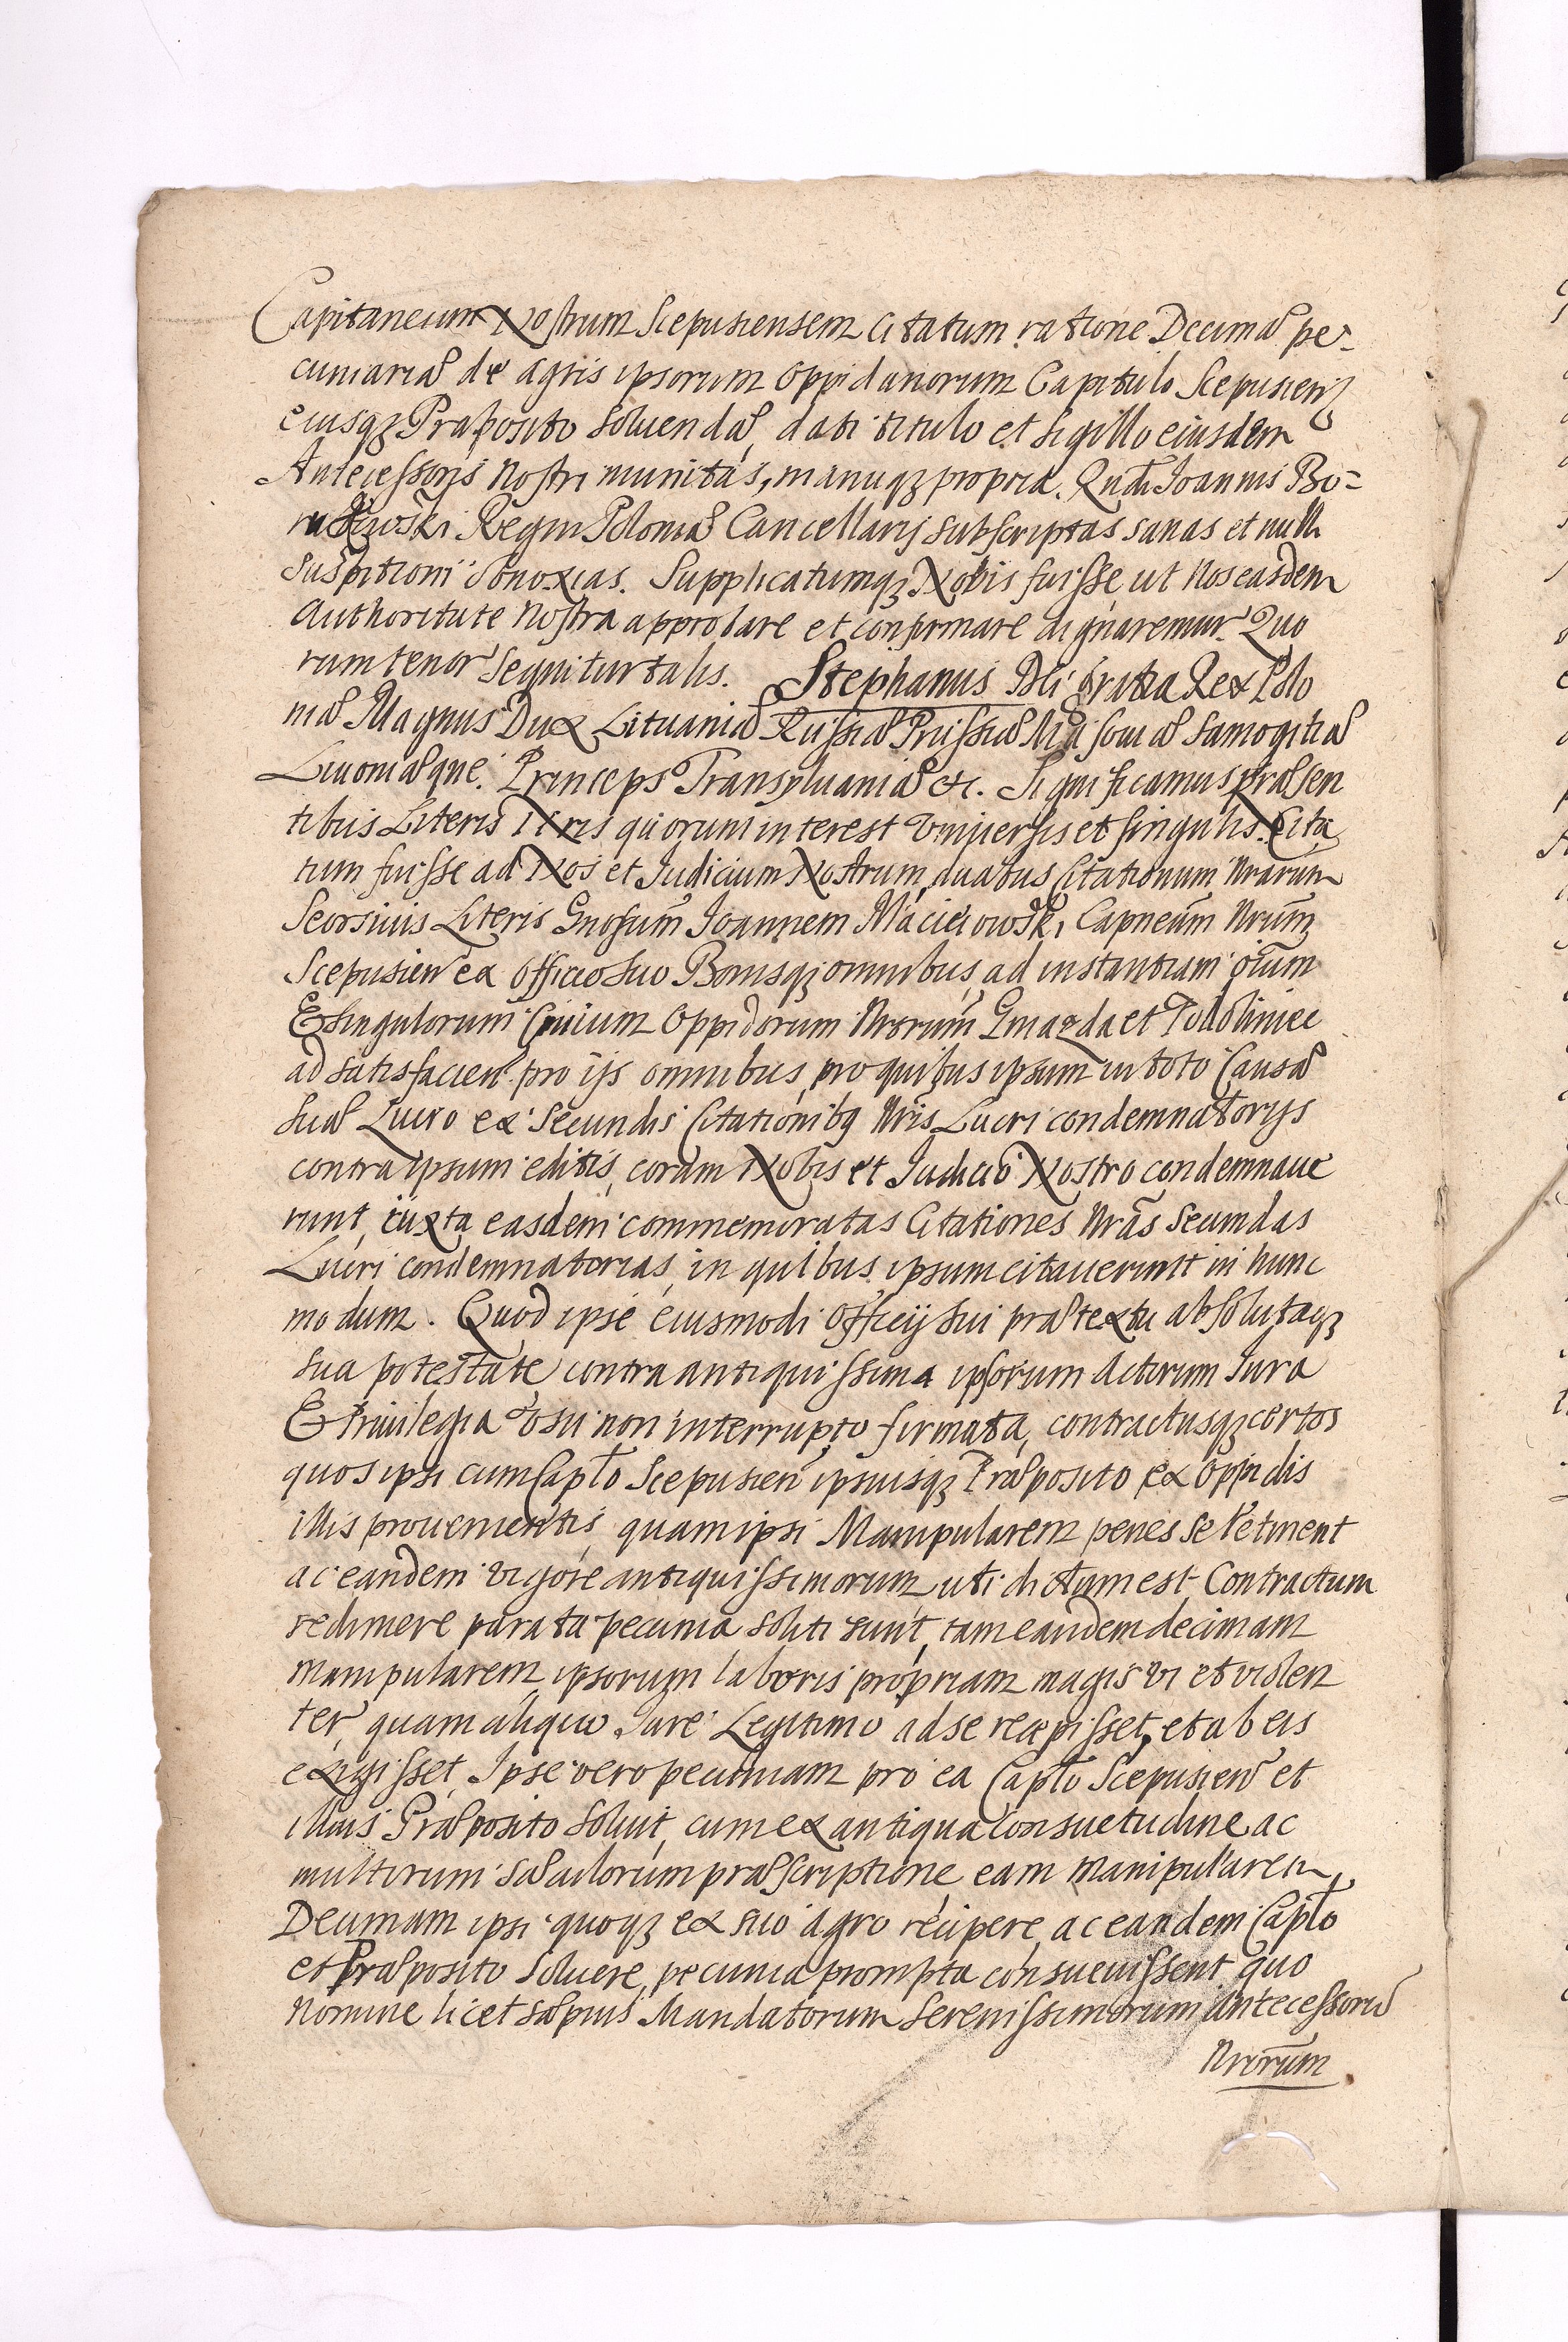 Capitaneum Nostrum Scepusiensem Citatum ratione Decimæ pe-
cuniariæ de agris ipsorum Oppidanorum Capitulo Scepusien
eiusqz Præposito soluendæ, dati titulo et sigillo eiusdem
Antecessoris Nostri munitas, manuqz propria. Qndã Joannis Bo=
rukowski Regni Poloniæ Cancellarij subscriptas sanas et nulli
suspitioni obnoxias. Supplicatumqz Nobis fuisse, ut Nos easdem
Authoritate Nostra approbare et confirmare dignaremur. Quo
rum tenor sequitur talis. Stephanus Dei Gratia Rex Polo
niæ Magnus Dux Lituaniæ Russiæ Prussiæ Masouiæ Samogitiæ
Liuoniæque. Princeps Transyluaniæ etc. Significamus præsen
tibus Literis Nris quorum interest Vniuersis et singulis. Cita
tum fuisse ad Nos et Iudicium Nostrum, duabus Citationum Nrarum
Seorsiuis Literis Gnosum Joannem Macieiowski Capneum Nrum
Scepusien ex Officio suo Bonisqz omnibus, ad instantiam oium
Et singulorum Ciuium Oppidorum Nrorum Gniazda et Podoliniec
ad satisfacien pro ijs omnibus, pro quibus ipsum in toto Causæ
suæ Lucro ex Secundis Citationibz Nris Lucri condemnatorijs
contra ipsum editis, coram Nobis et Iudicio Nostro condemnaue
runt, iuxta easdem commemoratas Citationes Nras Secundas
Lucri condemnatorias, in quibus ipsum citauerunt in hunc
modum. Quod ipse eiusmodi Officij sui prætextu absolutaqz
sua potestate contra antiquissima ipsorum Actorum Iura
Et Priuilegia Vsu non interrupto firmata, contractusqz certos
quos ipsi cum Capło Scepusien ipsiusqz Præposito ex oppidis
illis prouenientis, quam ipsi Manipularem penes se retinent
ac eandem vigore antiquissimorum, uti dictum est Contractum
redimere parata pecunia soliti sunt, tam eandem decimam
Manipularem, ipsorum laboris propriam magis vi et violen
ter, quam aliquo Iure Legitimo ad se recepisset, et ab eis
exigisset, Ipse vero pecuniam pro ea Capło Scepusien et
illius Præposito soluit, cum ex antiqua Consuetudine ac
multorum Sæculorum præscriptione, eam Manipularem
Decimam ipsi quoqz ex suo agro recipere, ac eandem Capło
et Præposito soluere, pecunia prompta consueuissent quo
Nomine licet sæpius Mandatorum Serenissimorum Antecessorũ
Nrorum